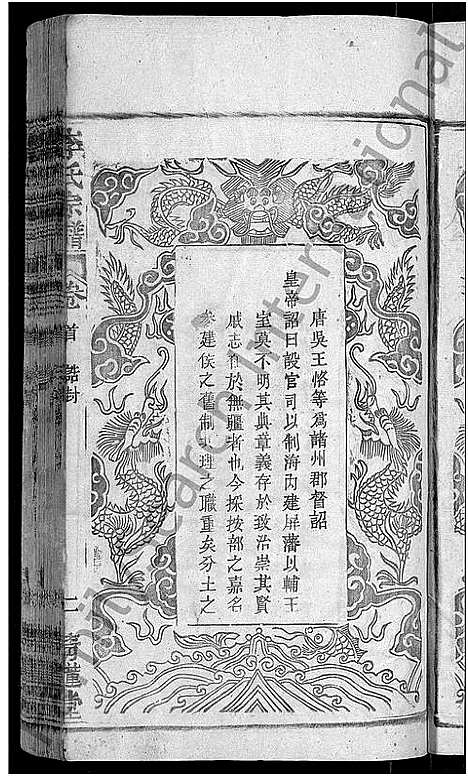 唐吳王恪等為諸州郡督詔
皇帝詔曰設官司以制海內建屏藩以輔王
室莫不明其典章義存於致治崇其賢
戚志在於無疆者也今採按部之嘉名
參建侯之舊制共理之職重矣分土之
李氏宗譜
卷首
誥封
二
堂